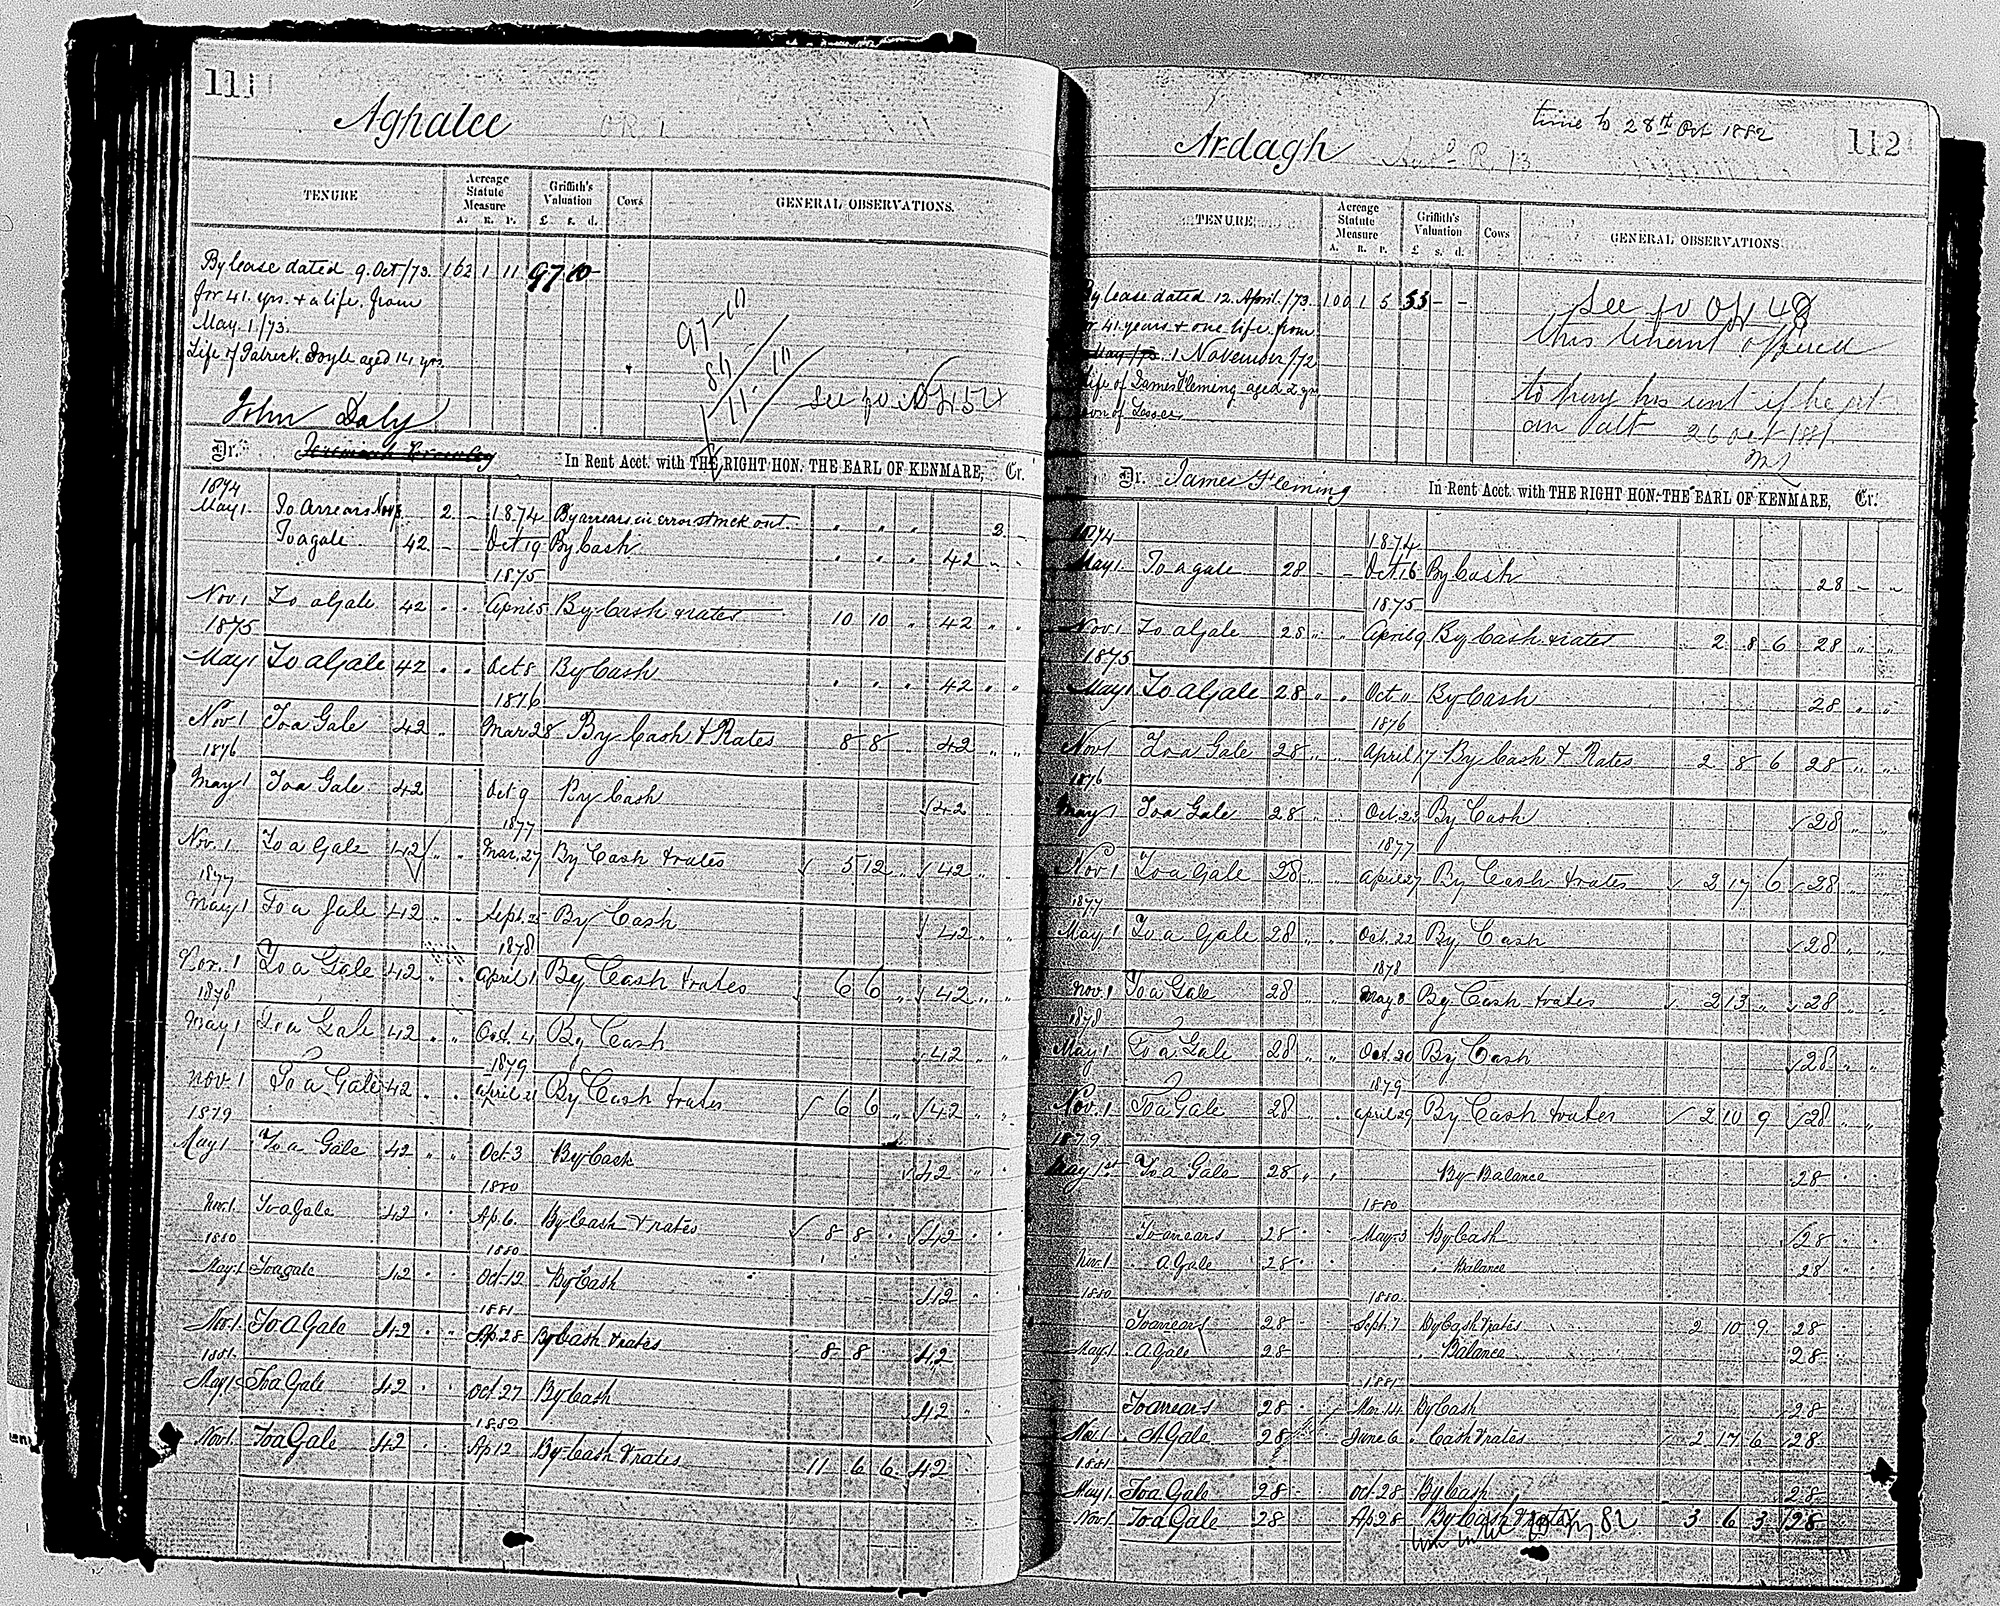 111
Aghalee
TENURE
Acreage Statute Measure
A. R. P.
Griffith's Valuation
£ s. d.
Cows
GENERAL OBSERVATIONS.
By lease dated 9. Oct/73. 162 1 11 97 10 -
for 41. yrs. + a life. from
May. 1/73.
Life of Patrick Doyle aged 14 yrs.
97-10
84
John Daly
Dr. In Rent Acct. with THE RIGHT HON. THE EARL OF KENMARE, Cr.
1874
May 1. To Arrears 2 - 1874 By arrears in error struck out " " " 2 -
To a gale 42 - - Oct 19 By Cash " " " 42 " "
1875
Nov. 1 To a Gale 42 " " April 5 By Cash & rates 10 10 " 42 " "
1875
May 1 To a Gale 42 " " Oct 8 By Cash " " " 42 " "
1876
Nov. 1 To a Gale 42 " Mar 28 By Cash & Rates 8 8 " 42 " "
1876
May 1 To a Gale 42 Oct 9 By Cash 42
1877
Nov. 1 To a Gale 42 " " Mar. 27 By Cash & rates 5 12 " 42 "
1877
May 1 To a Gale 42 " " Sept. By Cash 42 " "
1878
Nov. 1 To a Gale 42 " " April 1 By Cash & rates 6 6 " 42 " "
1878
May 1 To a Gale 42 " " Oct. 4 By Cash 42 " "
1879
Nov. 1 To a Gale 42 " " April 21 By Cash & rates 6 6 " 42 " "
1879
May 1 To a Gale 42 " " Oct. 3 By Cash 42 " "
1880
Nov. 1. To a Gale 42 " " Ap. 6. By Cash & rates 8 8 " 42 " "
1880 1880
May. 1 To a gale 42 " " Oct. 12 By Cash 42 "
1881
Nov. 1. To a Gale 42 " " Ap. 28 By Cash & rates 8 8 42
1881.
May 1st To a Gale 42 " " Oct. 27 By Cash 42 "
1882
Nov. 1. To a Gale 42 " " Ap 12 By Cash & rates 11 6 6 42
time to 28th Oct 1882
112
Ardagh
TENURE.
Acreage Statute Measure
A. R. P.
Griffith's Valuation
£ s. d.
Cows
GENERAL OBSERVATIONS.
By lease dated 12. April. /73. 100 1 5 53 - -
for 41 years + one life. from
1 November /72
Life of James Fleming aged 2 yrs
son of Lessee
this tenant offered
to pay his rent if he get
an 26 Oct 1881
Dr. James Fleming In Rent Acct. with THE RIGHT HON. THE EARL OF KENMARE, Cr.
1874 1874
May 1. To a gale 28 - - Oct. 16 By Cash 28 - "
1875
Nov. 1 To a Gale 28 " " April 9 By Cash & rates 2 8 6 28 " "
1875
May 1 To a Gale 28 " " Oct 11 By Cash 28 " "
1876
Nov 1 To a Gale 28 " " April 17 By Cash & Rates 2 8 6 28 " "
1876
May 1 To a Gale 28 " " Oct. 23 By Cash 28 " "
1877
Nov 1 To a Gale 28 " " April 27 By Cash & rates 2 17 6 28 "
1877
May 1 To a Gale 28 " " Oct. 22 By Cash 28 "
1878
Nov. 1 To a Gale 28 " " May 8 By Cash & rates 2 13 " 28 "
1878
May 1. To a Gale 28 " " Oct. 20 By Cash 28 " "
1879
Nov. 1 To a Gale 28 " " April 29 By Cash & rates 2 10 9 28 " "
1879
May 1st To a Gale 28 " " By Balance 28 "
1880
To arrears 28 " May 3 By Cash 28 "
Nov. 1 " a Gale 28 " " " Balance 28 "
1880 1880
To arrears 28 " Sept. 7 By Cash & rates 2 10 9 28 "
May. 1 " a Gale 28 " " Balance 28 "
1881
To arrears 28 " Mar. 14 By Cash 28 "
Nov. 1 " A Gale 28 June 6 " Cash & rates 2 17 6 28
1881
May 1. To a Gale 28 " Oct. 28 By Cash 28
Nov. 1 To a Gale 28 " Ap 28 By Cash & rates 3 6 3 28
82